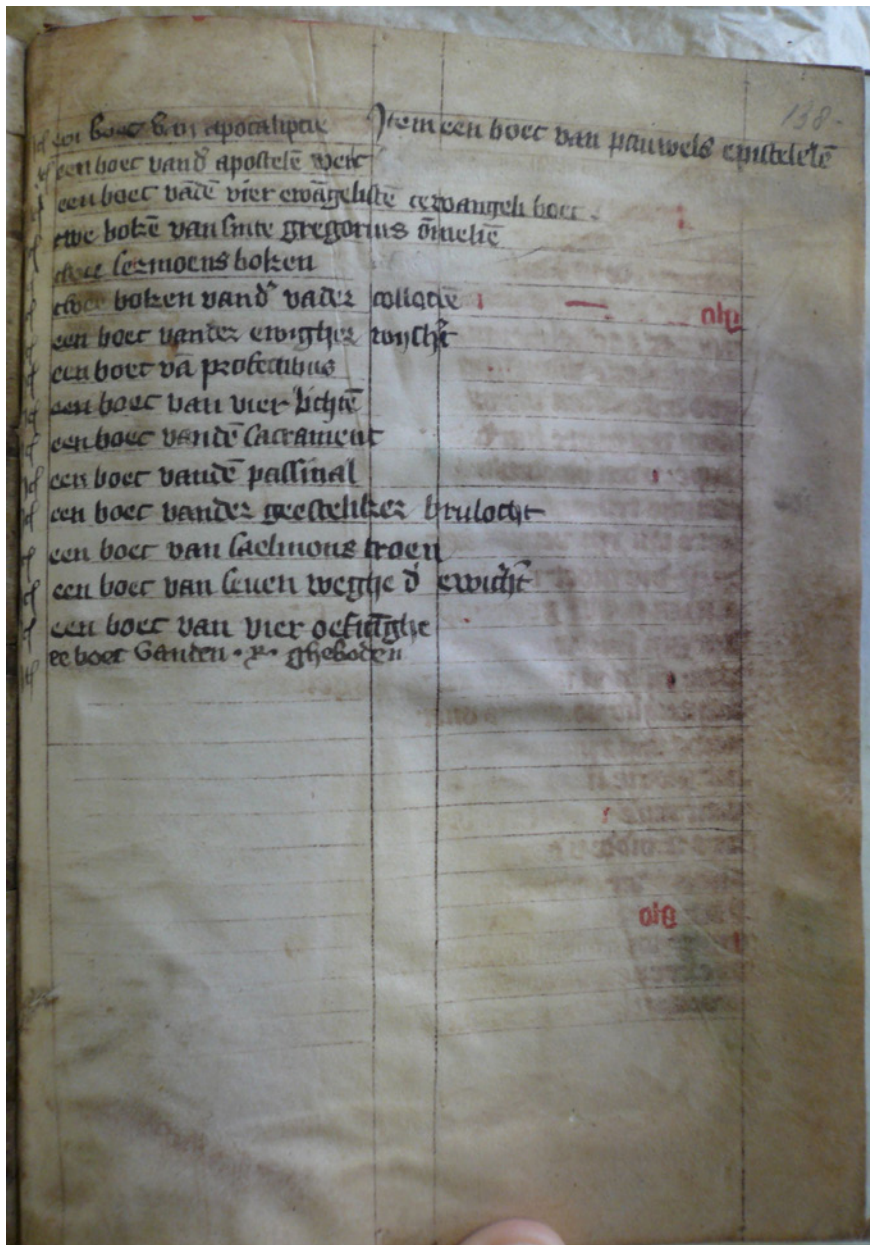 een boec van apocalipcie Item een boec van pauwels epistelen
een boec vand apostelē werc
een boec vādē vier ewāgelistē ewangeli boec
twe bokē van sinte gregorius ōmeliē
sermoens boken
twee boken vand vader collaciē
een boec vander ewigher wijsht
een boec vā profectibus
een boec van vier lichtē
een boec vandē sacrament
een boec vandē passinal
een boec vander geesteliker brulocht
een boec van saelmons troen
een boec van seuen weghe d ewicht
een boec van vier oefnīghe
ee boec vanden .x. gheboden
138